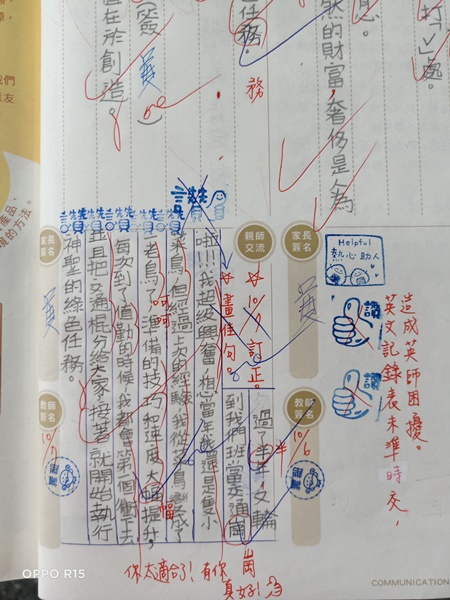 打「ˇ」處。
然的財富，奢侈是人為
任務。
務
值在於創造。
(簽
家長
簽名
Helpful
熱心助人
讚
讚
造成英師困擾。
英文記錄表未準時交，
親師
交流
10/7訂正。
畫佳句。
教師
簽名
10/6
過了半年，又輪
到我們班當交通崗
啦!!!我超級興奮，想當年我還是隻小
菜鳥，但經過上次的經驗，我從菜鳥變成了
老鳥了，準備的技巧和速度大幅提升，
每次到了值勤的時候，我都會第一個衝下去
並且把交通棍分給大家，接著就開始執行
神聖的綠色任務。
半
崗
幅
家長
簽名
教師
簽名
10/7
你太適合了!有你真好!
COMMUNICATION
OPPO R15